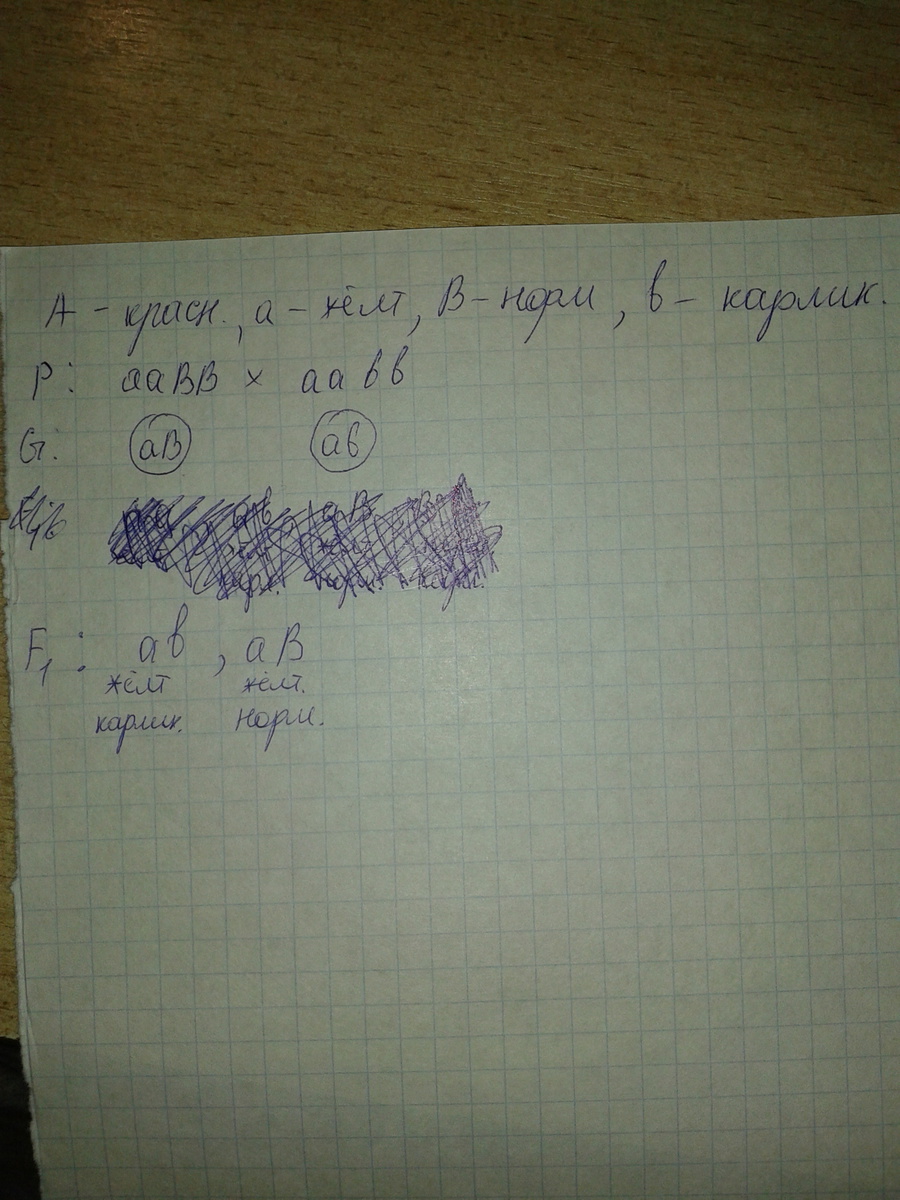 А - красн., а - жёлт, В - норм, в - карлик.
Р: ааВВ × аавв
G. аВ ав
F₁: ав, аВ
жёлт жёлт.
карлик. норм.